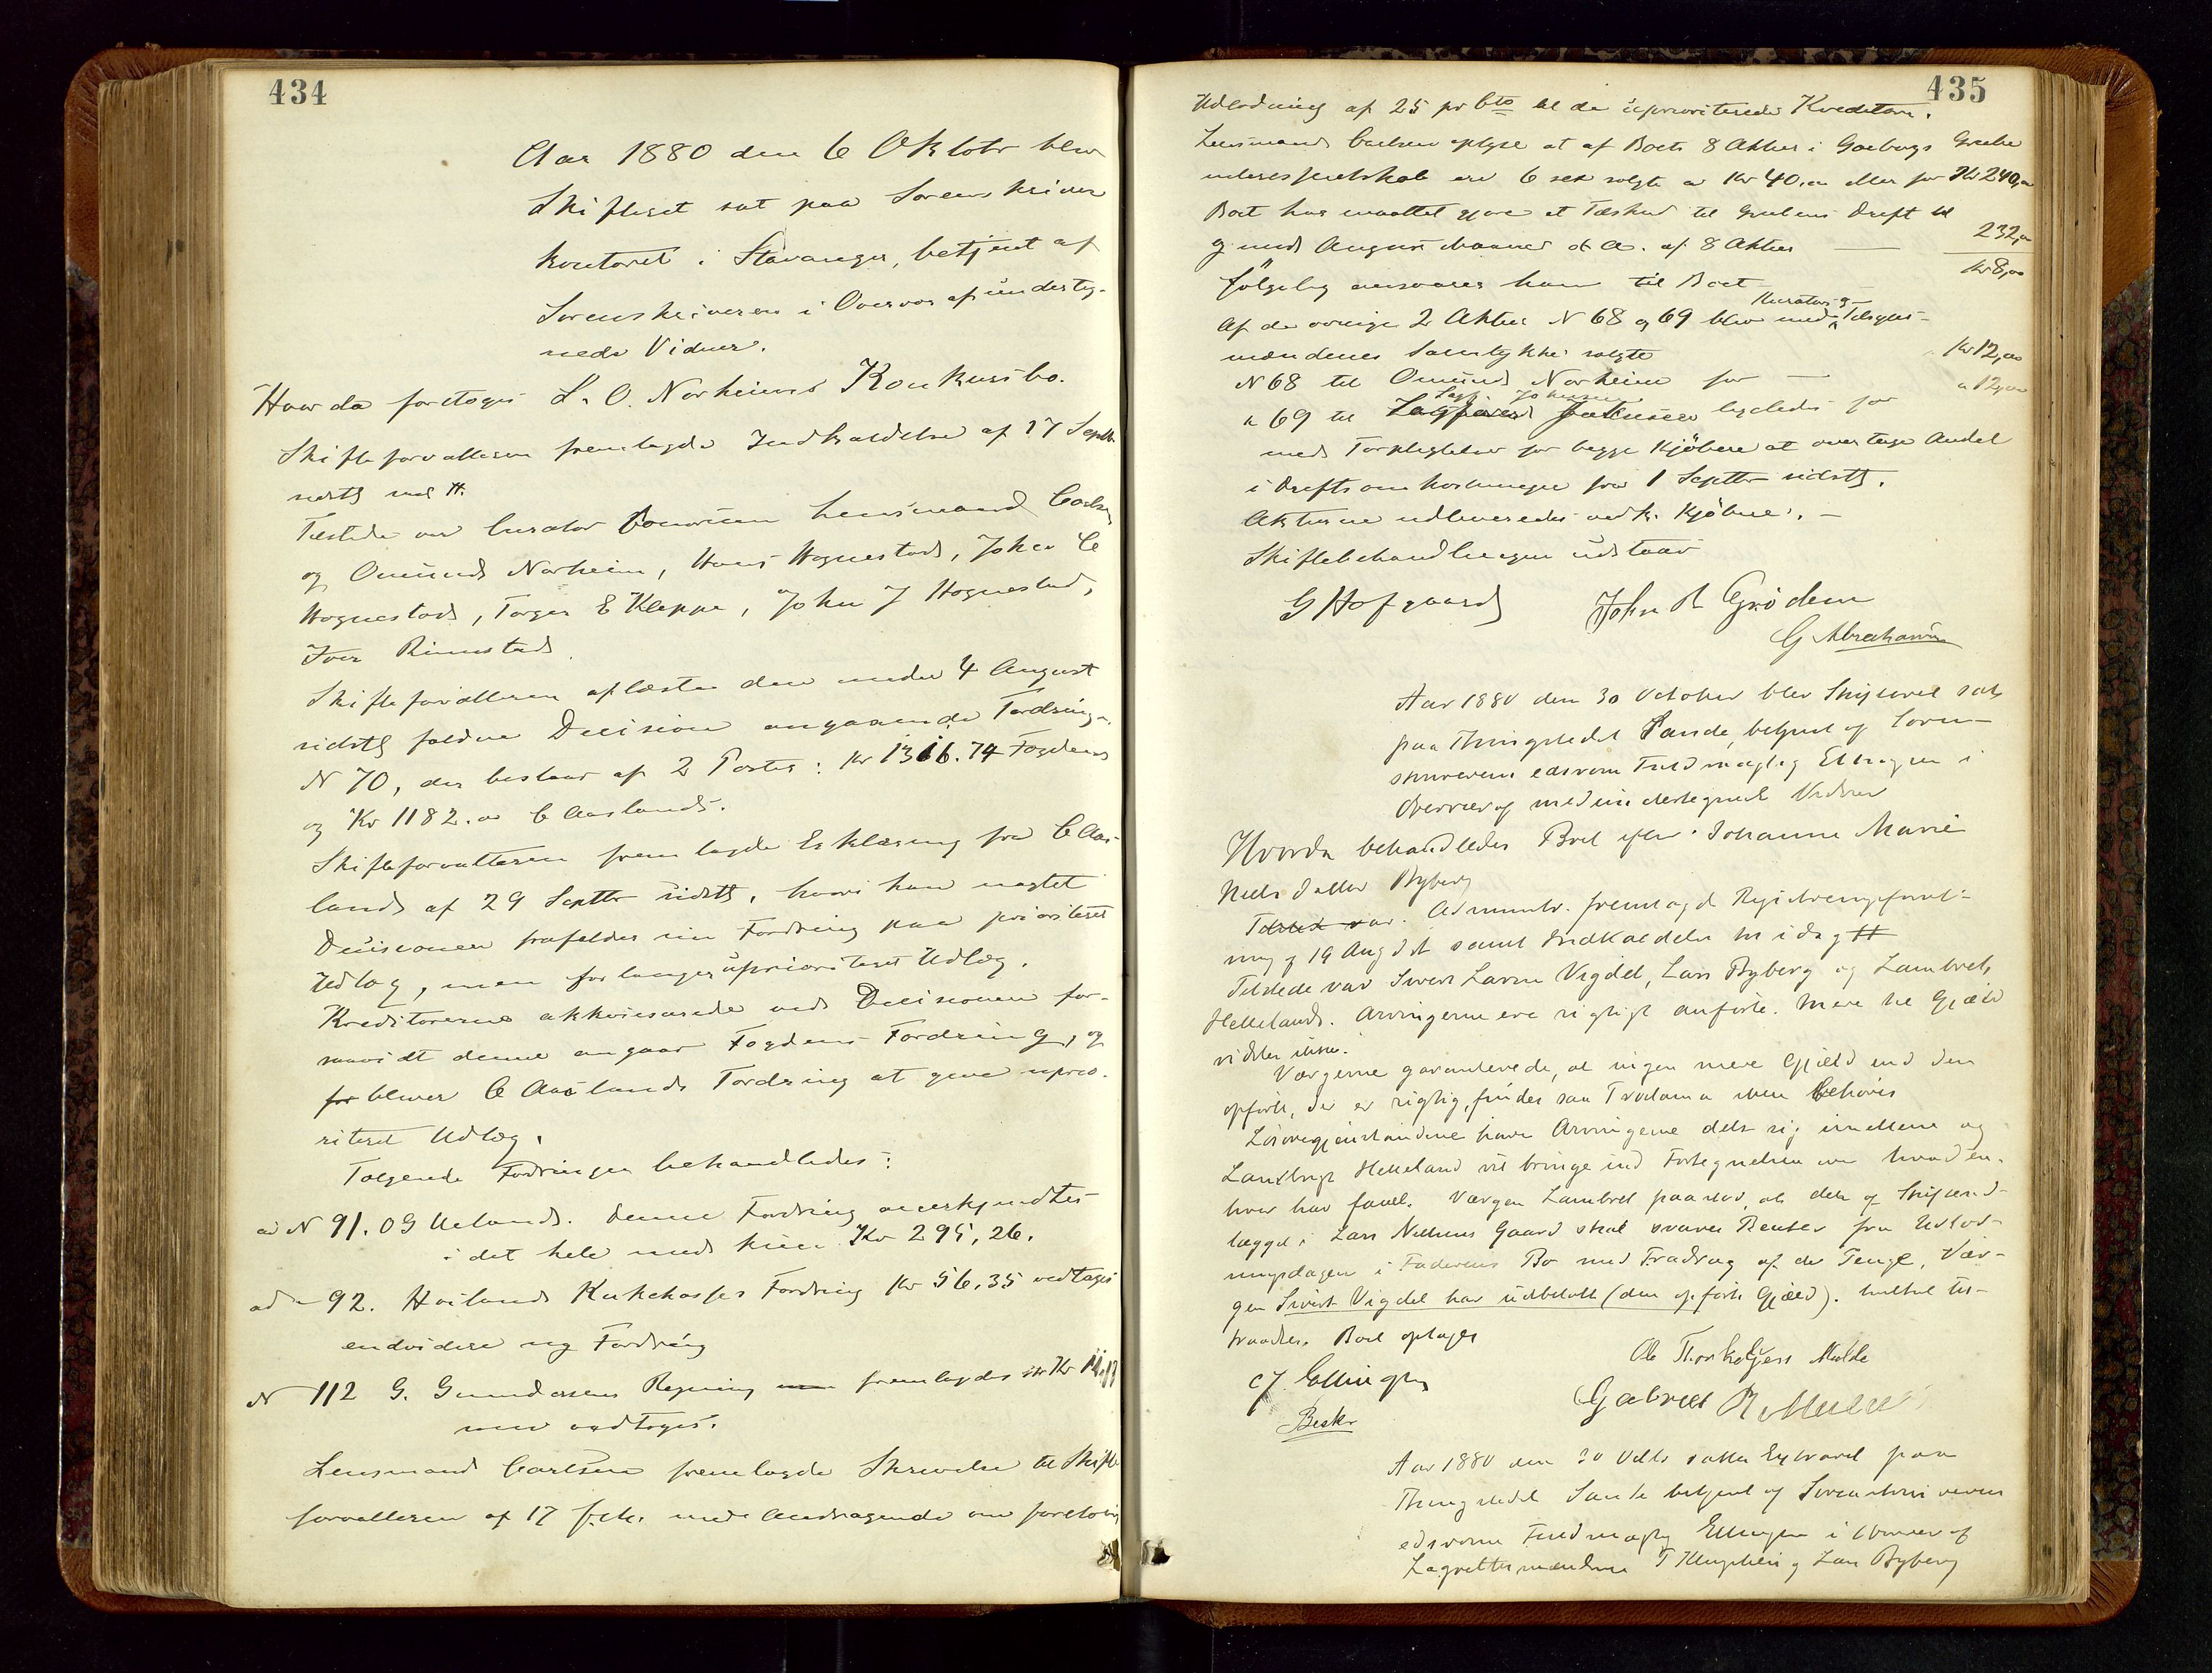 434
Aar 1880 den 6 Oktobr blev
Skifteret sat paa Sorenskriver
kontoret i Stavanger, betjent af
Sorenskriveren i Overvær af underteg-
nede Vidner.
Hvorda foretoges L. O. Norheims Konkursbo.
Skifteforvalteren fremlagde Indkaldelse af 17 Septbr
sidstl
Tilstede var Curator bonorum Lensmand Carlsen
og Omund Norheim, Hans Hognestad, John C
Hognestad, Torger E Kleppe, John J Hognestad,
Iver Rimestad
Skifteforvalteren oplæste den under 4 August
sidstl faldne Decision angaaende Fordring
N 70, der bestaar af 2 Poster: Kr 1316.74 Fogdens
og Kr 1182. C Aaslands.
Skifteforvalteren fremlagde Erklæring fra C Aas-
land af 29 Septbr sidstl, hvori han
Decisionen frafalder sin Fordring paa prioriteret
Udlæg, men forlanger uprioriteret Udlæg.
Kreditorerne akkviescerede ved Decisionen for-
saavidt denne angaar Fogdens Fordring, og
for bliver C Aaslands Fordring at give uprio-
riteret Udlæg.
Følgende Fordringer behandledes:
ad N 91. O G Ueland. Denne Fordring anerkjendtes
i det hele med kun Kr 295,26.
ad - 92. Høilands Fordring Kr 56,35 vedtoges
endvidere ny Fordring
N 112 G. Gundersens Regning fremlagdes Kr
vedtoges.
Lensmand Carlsen fremlagde Skrivelse til Skifte
forvalteren af 17 f.M. med Andragende om foreløbig
435
Udlodning af 25 pr Cto til de uprioriterede Kreditorer.
Lensmand Carlsen oplyse at af Boets 8 Aktier i Grube
interessentskab ere 6 solgte a Kr 40, eller for Kr 240,
Boet har maattet gjøre et Tilskud til Grubens Drift til
og med August Maaned d A. af 8 Aktier — 232,
følgelig han til Boet Kr 8,00
Af de øvrige 2 Aktier N 68 og 69 blev med Kurators og Tilsyns-
mændenes Samtykke solgte
N 68 til Omund Norheim for — Kr 12,00
" 69 til ligeledes for " 12,00
med Forpligtelse for begge Kjøbere at overtage Andel
i Driftsomkostninger fra 1 Septbr sidstl.
Aktierne udleveredes vedk. Kjøbere. —
Skiftebehandlingen udstaar
G Hofgaard John R Grødem
G Abrahamsen
Aar 1880 den 30 October blev Skifteret sat
paa Thingstedet Sande, betjent af Soren-
skriverens edsvorne Fuldmægtig Ellingsen i
Overvær af medundertegnede Vidner
Hvorda behandledes Boet efter Johanne Marie
Nielsdatter Byberg
Tilstede var. Administr. fremlagde Registreringsforret-
ning af 19 Aug samt Indkaldelse til idag
Tilstede var Sivert Larsen Vigdel, Lars Byberg og Lambret
Helleland. Arvingerne ere rigtigt anførte. Mere til Gjæld
vidstes ikke.
Værgerne garanterede, at ingen mere Gjæld end den
opførte, der er rigtig, findes saa Proclama ikke behøves
Løsøregjenstandene have Arvingerne delt sig imellem og
Lambregt Helleland vil bringe ind Fortegnelse over hvad en-
hver har faaet. Værgen Lambret paastod, at
lægget i Lars Nielsens Gaard skal svares Renter fra Udlod-
ningsdagen i Faderens Bo med Fradrag af de Penge, Vær-
gen Sivert Vigdel har udbetalt (den opførte Gjæld). hvilket til-
traadtes. Boet optages
CJ. Ellingsen Ole Thorkeljsen Melde
Beskr Gabriel R
Aar 1880 den 30 Octb sattes Extraret paa
Thingstedet Sande betjent af Sorenskriverens
edsvorne Fuldmægtig Ellingsen i Overvær af
Lagrettesmændene T og Lars Byberg